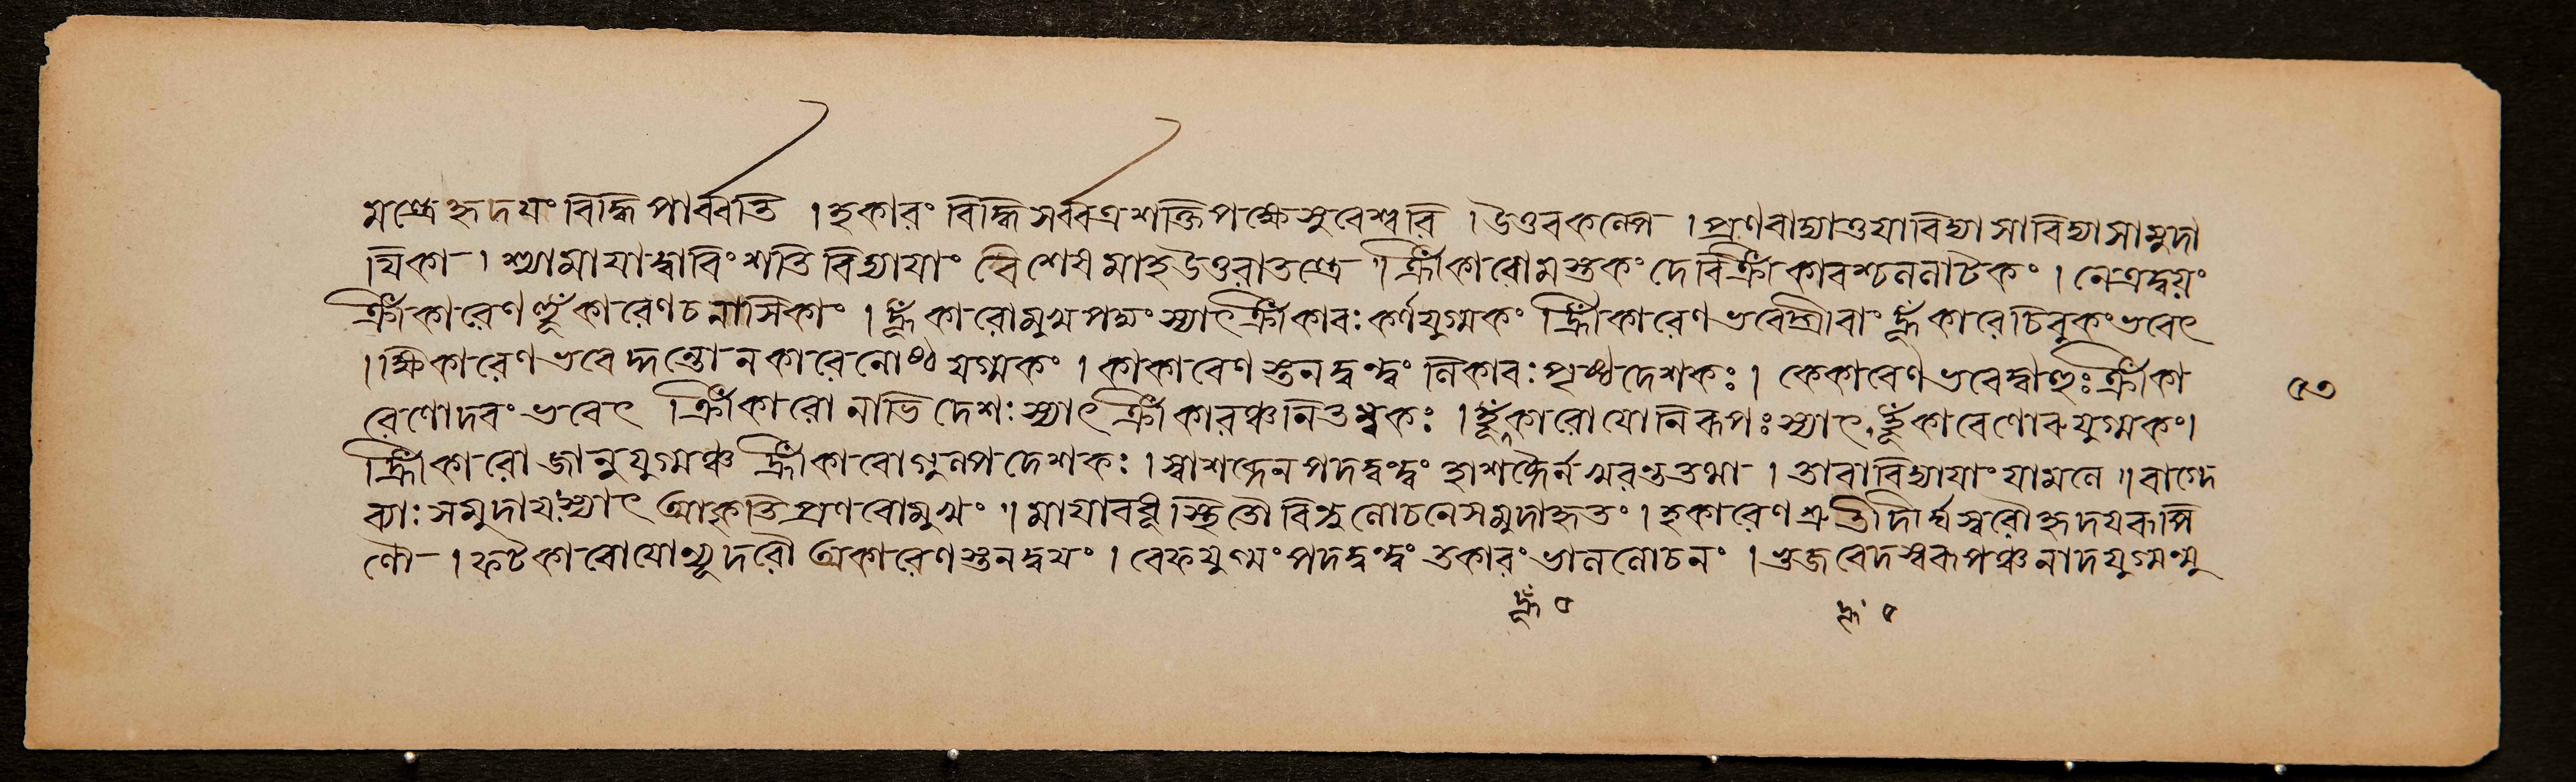 মন্ত্রে হৃদযং বিদ্ধি পার্ব্বতি । হকারং বিদ্ধি সর্ব্বত্র শক্তিপক্ষে সুরেশ্বরি । উত্তরকল্পে । প্রণবাদ্যাতুযাবিদ্যা সাবিদ্যা সামুদা
যিকা । শ্যামাযা দ্বাবিংশতি বিদ্যাযাং বিশেষমাহ উত্তরাতন্ত্রে ॥ ক্রীঁকারো মস্তকং দেবি ক্রীঁকারশ্চ ললাটকং । নেত্রদ্বয়ং
ক্রীঁকারেণ হূঁকারেণ চ নাসিকাং । হূঁকারো মুখপদ্মং স্যাৎ ক্রীঁকারঃ কর্ণযুগ্মকং হ্রীঁকারেণ ভবেদ্গ্রীবাং হূঁকারে চিবুকং ভবেৎ
। দকারেণ ভবেদ্দন্তো লকারেনোষ্ঠযগ্মকং । কাকারেণ স্তনদ্বন্দ্বং লিকারঃ পৃষ্ঠদেশকঃ । কেকারেণ ভবেদ্বাহুঃ ক্রীঁকা
রেণোদরং ভবেৎ ক্রীঁকারো নাভিদেশঃ স্যাৎ ক্রীঁকারঞ্চ নিতম্বকঃ । হূঁকারো যোনিরূপঃ স্যাৎ হূঁকারেণোরুযুগ্মকং ।
হ্রীঁকারো জানুযুগ্মঞ্চ হ্রীঁকারো গুল্পদেশকঃ । স্বাশব্দেন পদদ্বংদ্বং হাশব্দৈর্নখরন্তুতথা । তারাবিদ্যাযাং যামলে ॥ বাগ্দে
ব্যাঃ সমুদাযস্যাৎ আকৃতি প্রণবো মুখং ॥ মাযাবধূস্থিতৌ বিষ্ণুলোচনে সমুদাহৃতং । হকারেণ শ্রুতি দির্ঘস্বরৌ হৃদযরূপি
ণৌ । ফটকারো যোন্যূদরৌ অকারেণ স্তনদ্বযং । রেফযুগ্মং পদদ্বন্দ্বং তকারং ভাললোচনং । ভুজবেদস্বরূপঞ্চ নাদযুগ্মন্মু
হূঁ ৫ হূঁ ৫
৫৩